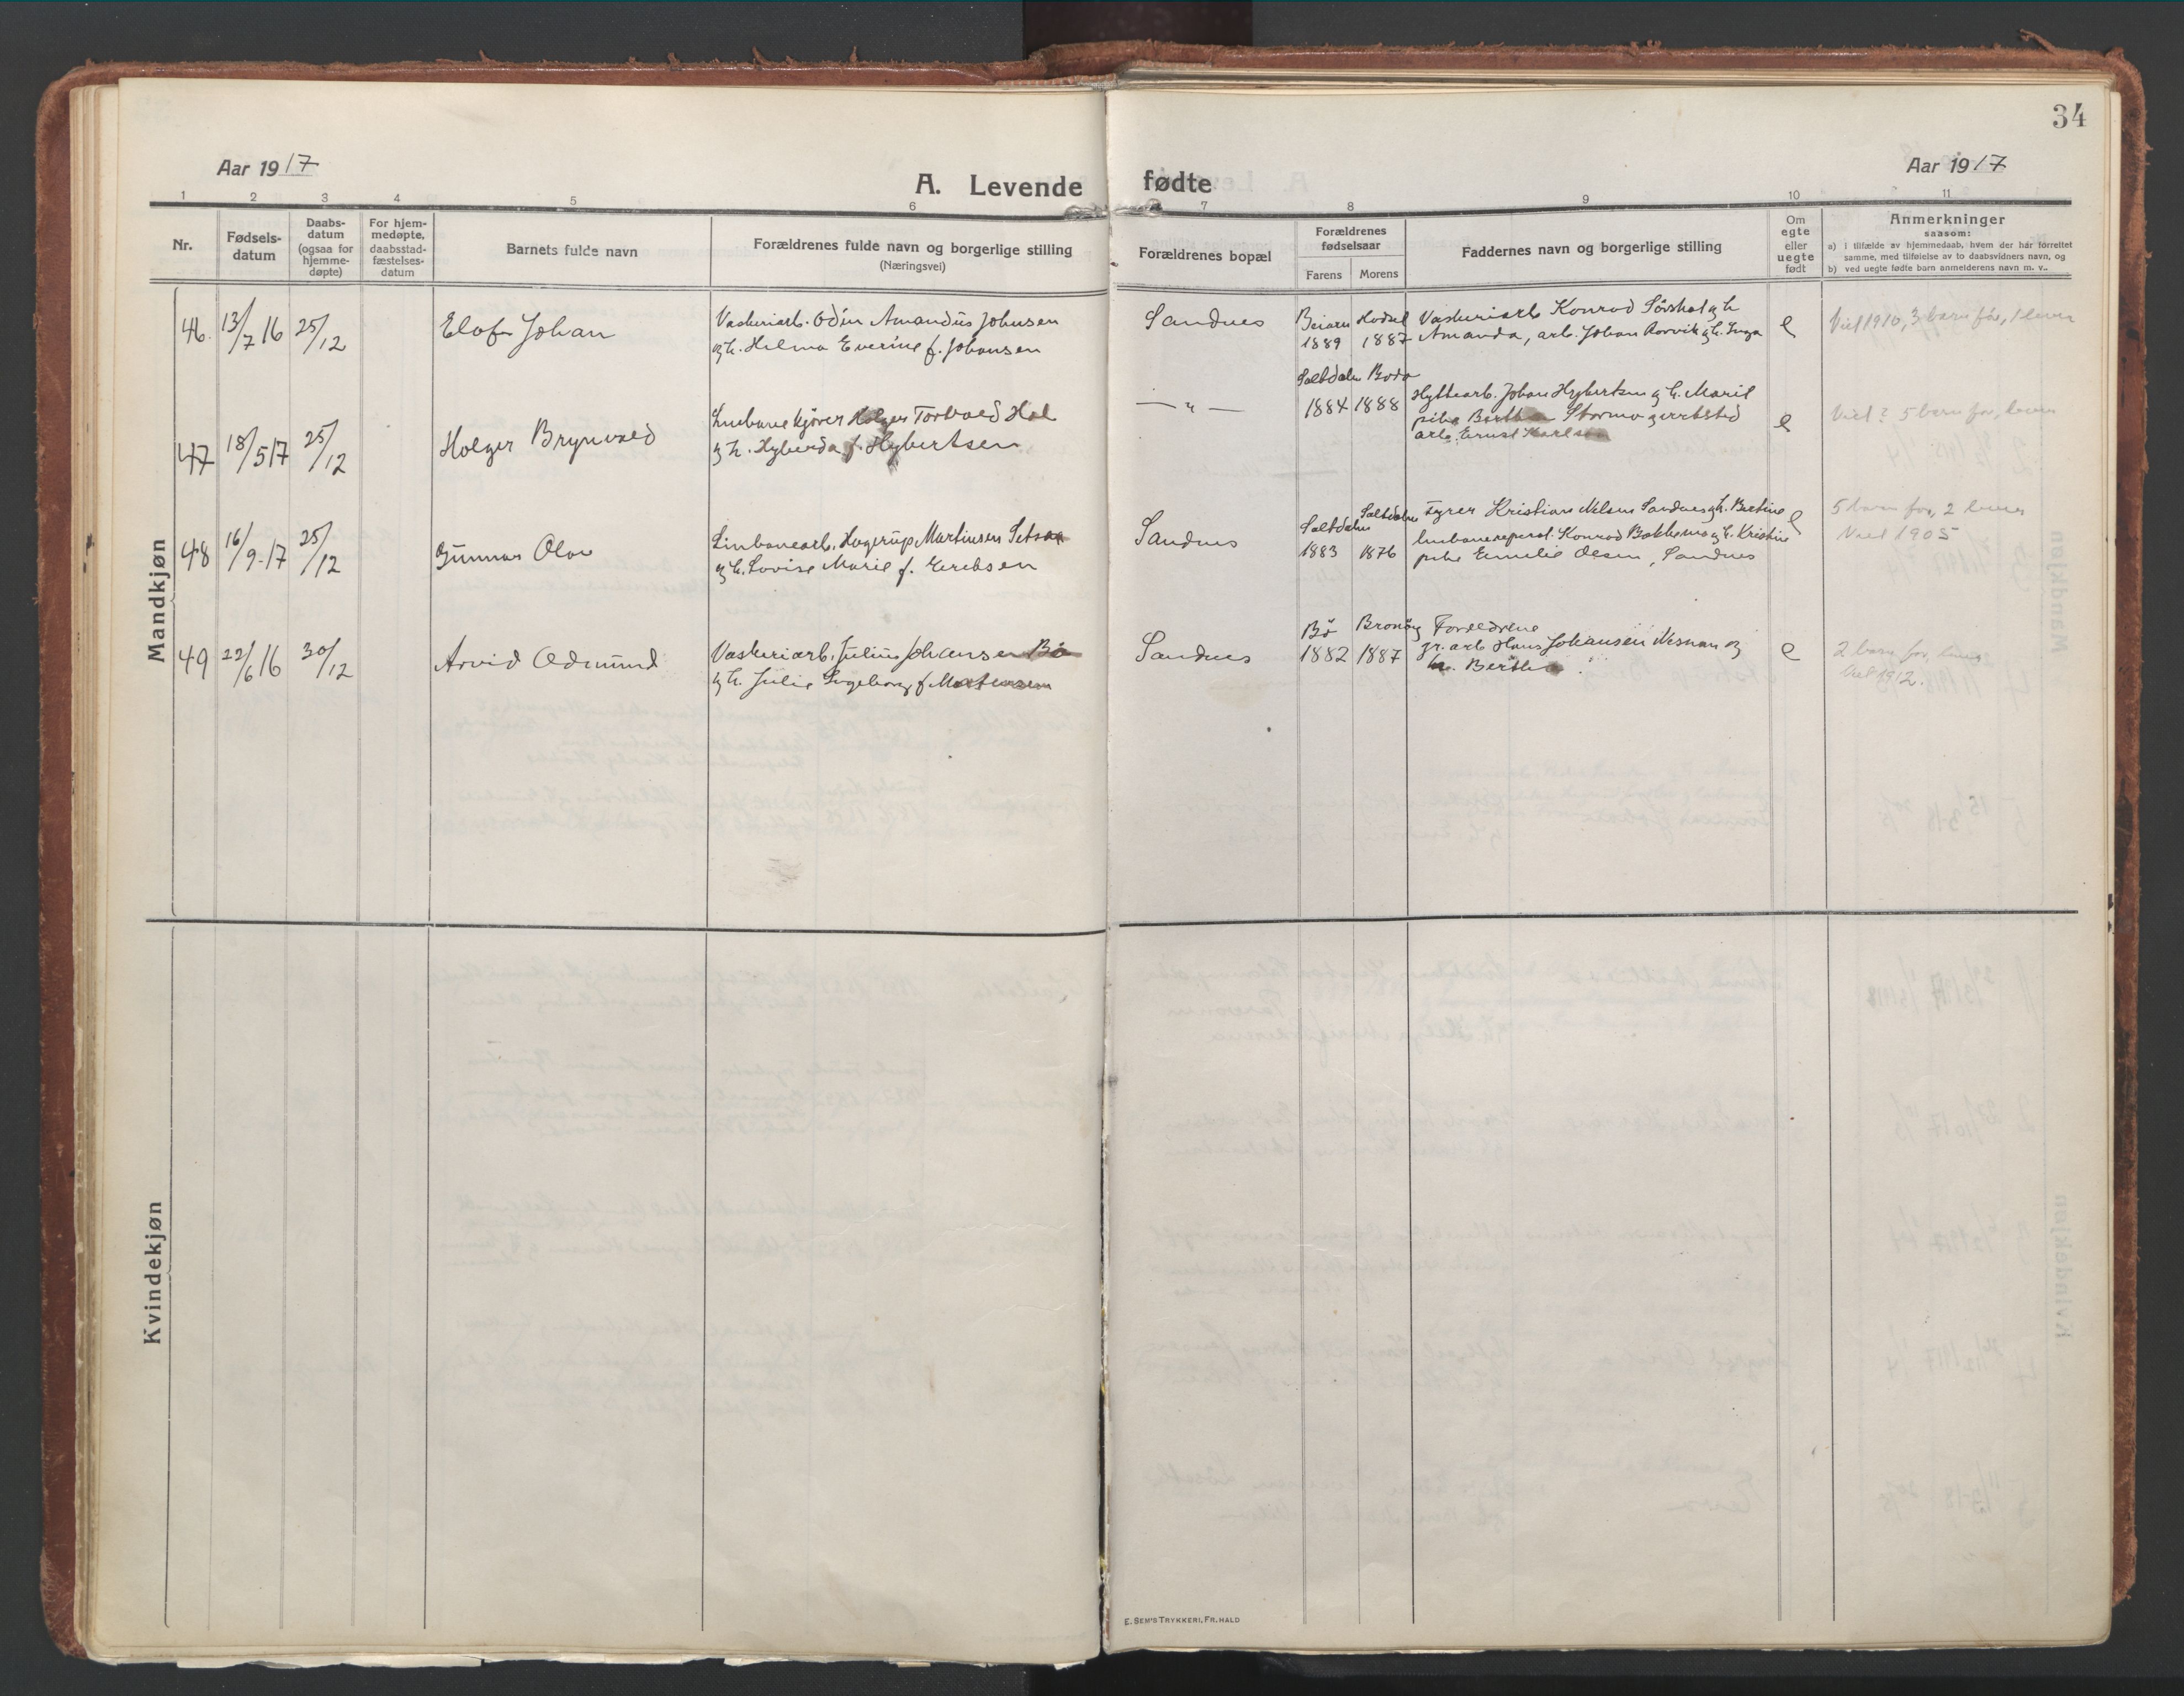 34
Aar 1917
A. Levende fødte
Aar 1917
1 2 3 4 5 6 7 8 9 10 11
Nr.
Fødsels-
datum
Daabs-
datum
(ogsaa for
hjemme-
døpte)
For hjem-
medøpte,
daabsstad-
fæstelses-
datum
Barnets fulde navn
Forældrenes fulde navn og borgerlige stilling
(Næringsvei)
Forældrenes bopæl
Forældrenes
fødselsaar
Farens Morens
Faddernes navn og borgerlige stilling
Om
egte
eller
uegte
født
Anmerkninger
saasom:
a) i tilfælde av hjemmedaab, hvem der har forrettet
samme, med tilføielse av to daabsvidners navn, og
b) ved uegte fødte barn anmelderens navn m. v..
Mandkjøn
46. 13/7 16 25/12
Elof Johan
Vaskeriarb. Odin Amandus Johnsen
og h. Helma Everine f. Johansen
Sandnes
Beiarn 1889
Hadsel 1887
Vaskeriarb Konrad Sörskot og h
Amanda, arb. Johan Rorvik og h. Inga
e
Viet 1910, 3 barn för, 1 lever
47 18/5 17 25/12
Holger Brynvald
Linbanekjörer Holger Torvald Hal
og h. Hyberda f. Hybertsen
— " —
Saltdalen 1884
Bodø 1888
Hyttearb. Johan Hybertsen og h. Marit
pike Stormo
arb. Ernst Karlsen
e
Viet? 5 barn för, lever
48 16/9-17 25/12
Gunnar Olav
Linbanearb. Hagerup Martinsen Setsaa
og h. Lovise Marie f. Eriksen
Sandnes
Saltdalen 1883
Saltdalen 1876
Kristian Nilsen Sandnes og h. Bertine
linbanereparat. Konrad Bakkemo og h. Kristine
pike Emelie Olsen, Sandnes
e
5 barn for, 2 lever
Viet 1905
49 22/6 16 30/12
Arvid Odmund
Vaskeriarb. Julius Johansen Bö
og h. Julie Ingeborg f. Mortensen
Sandnes
Bö 1882
Brönöy 1887
Foreldrene
gr. arb Hans Johansen Nesman og
h. Berthe
e
2 barn for, lever
Viet 1912.
Kvindekjøn
E. SEM'S TRYKKERI, FR. HALD